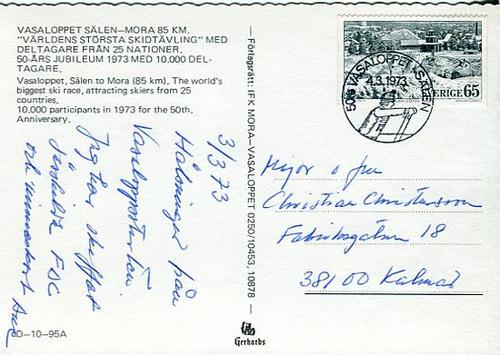 VASALOPPET SÄLEN–MORA 85 KM.
"VÄRLDENS STÖRSTA SKIDTÄVLING" MED
DELTAGARE FRÅN 25 NATIONER.
50-ÅRS JUBILEUM 1973 MED 10.000 DEL-
TAGARE.
Vasaloppet, Sälen to Mora (85 km), The world's
biggest ski race, attracting skiers from 25
countries.
10,000 participants in 1973 for the 50th.
Anniversary.
3/3 73
Hälsningar från
Vasaloppsstarten.
Jag har skaffat
särskilda FDC
och minneskort
D–10–95A
— Förlagsrätt: IFK MORA–VASALOPPET 0250/10453, 10878 —
Gerhards
50e VASALOPPET SÄLEN
4.3.1973
SVERIGE 65
Major o fru
Christian Christensson
Fabriksgatan 18
381 00 Kalmar